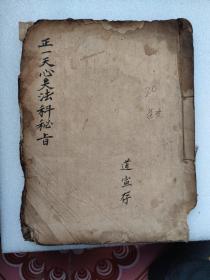 正一天心灵法科秘旨
道宣存